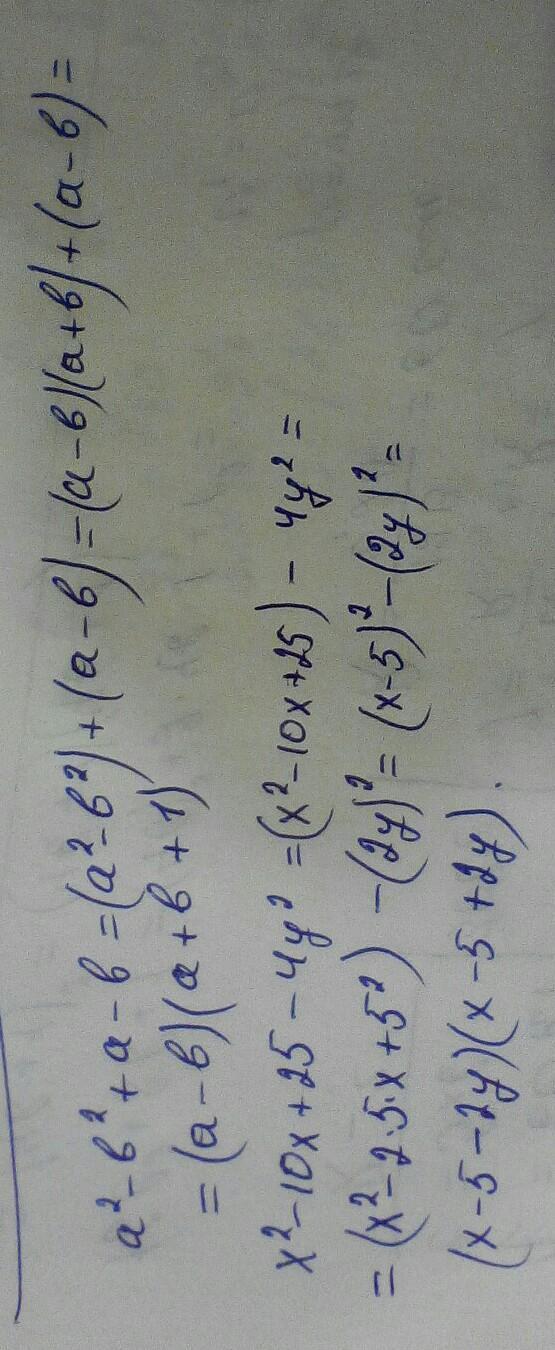 a²-b²+a-b=(a²-b²)+(a-b)=(a-b)(a+b)+(a-b)=
=(a-b)(a+b+1)
x²-10x+25-4y²=(x²-10x+25)-4y²=
=(x²-2·5·x+5²)-(2y)²=(x-5)²-(2y)²=
(x-5-2y)(x-5+2y).